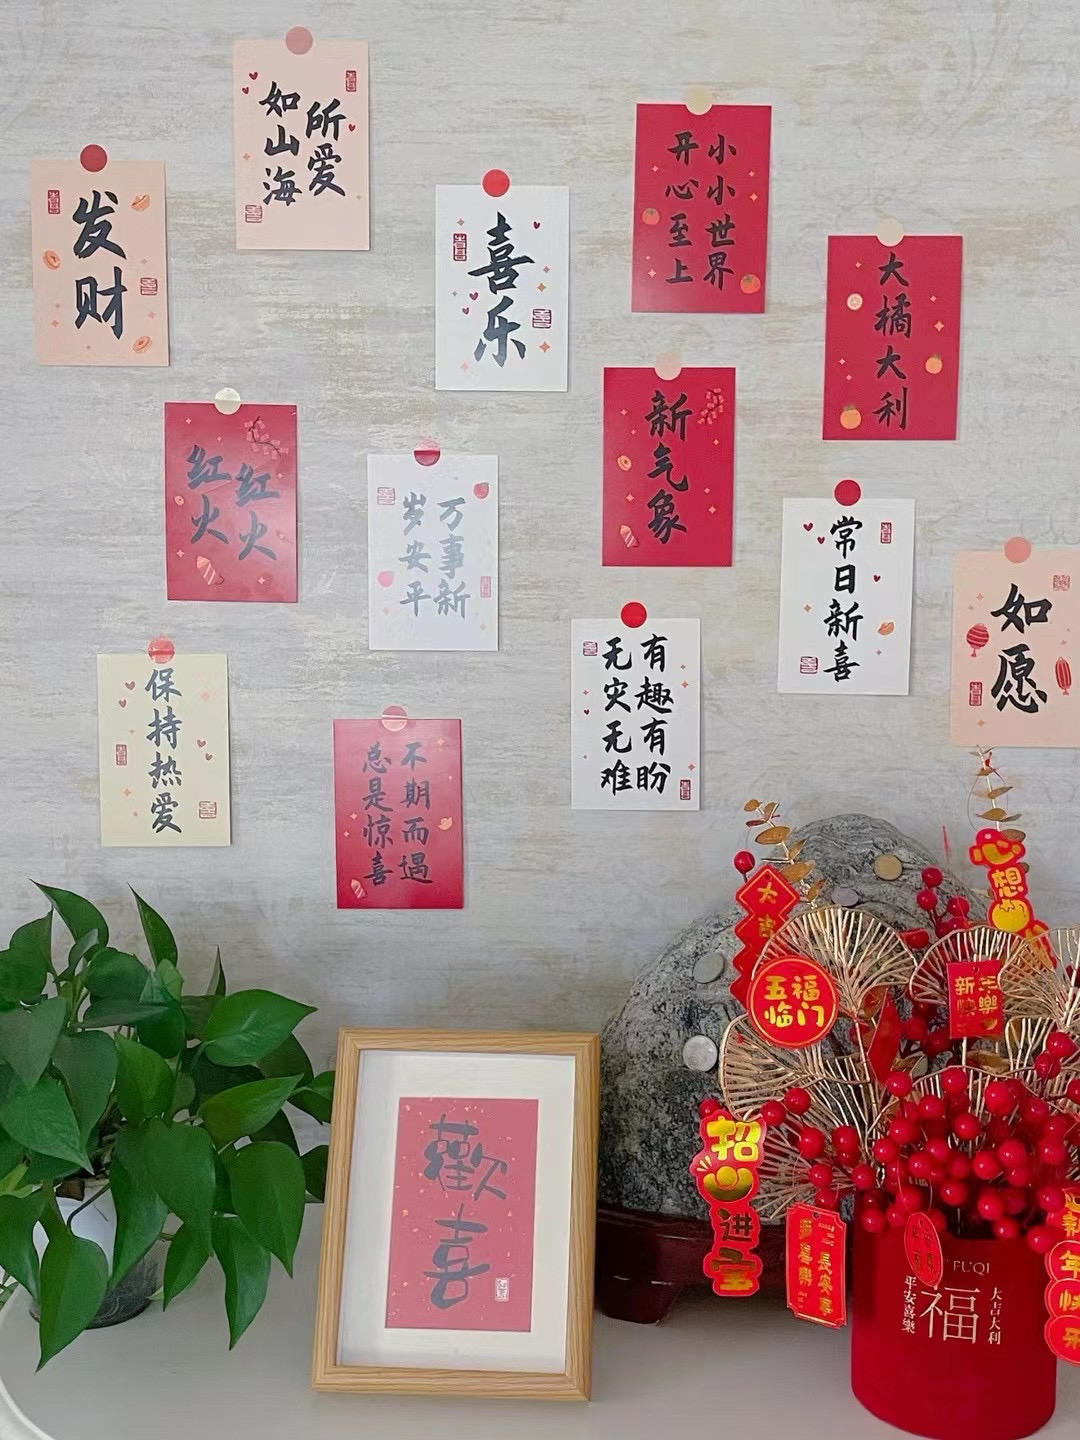 所爱
如山海
发财
喜乐
小小世界
开心至上
大橘大利
红火
红火
万事新
岁安平
新气象
常日新喜
如愿
保持热爱
不期而遇
总是惊喜
有趣有盼
无灾无难
歡喜
大吉
五福
临门
心想
新年
快樂
招
进宝
長安寧
FU'QI
福
平安喜樂
大吉大利
新年快乐